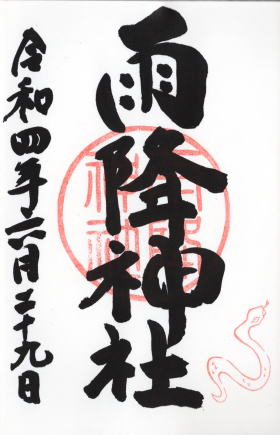 雨降神社
令和四年六月二十九日